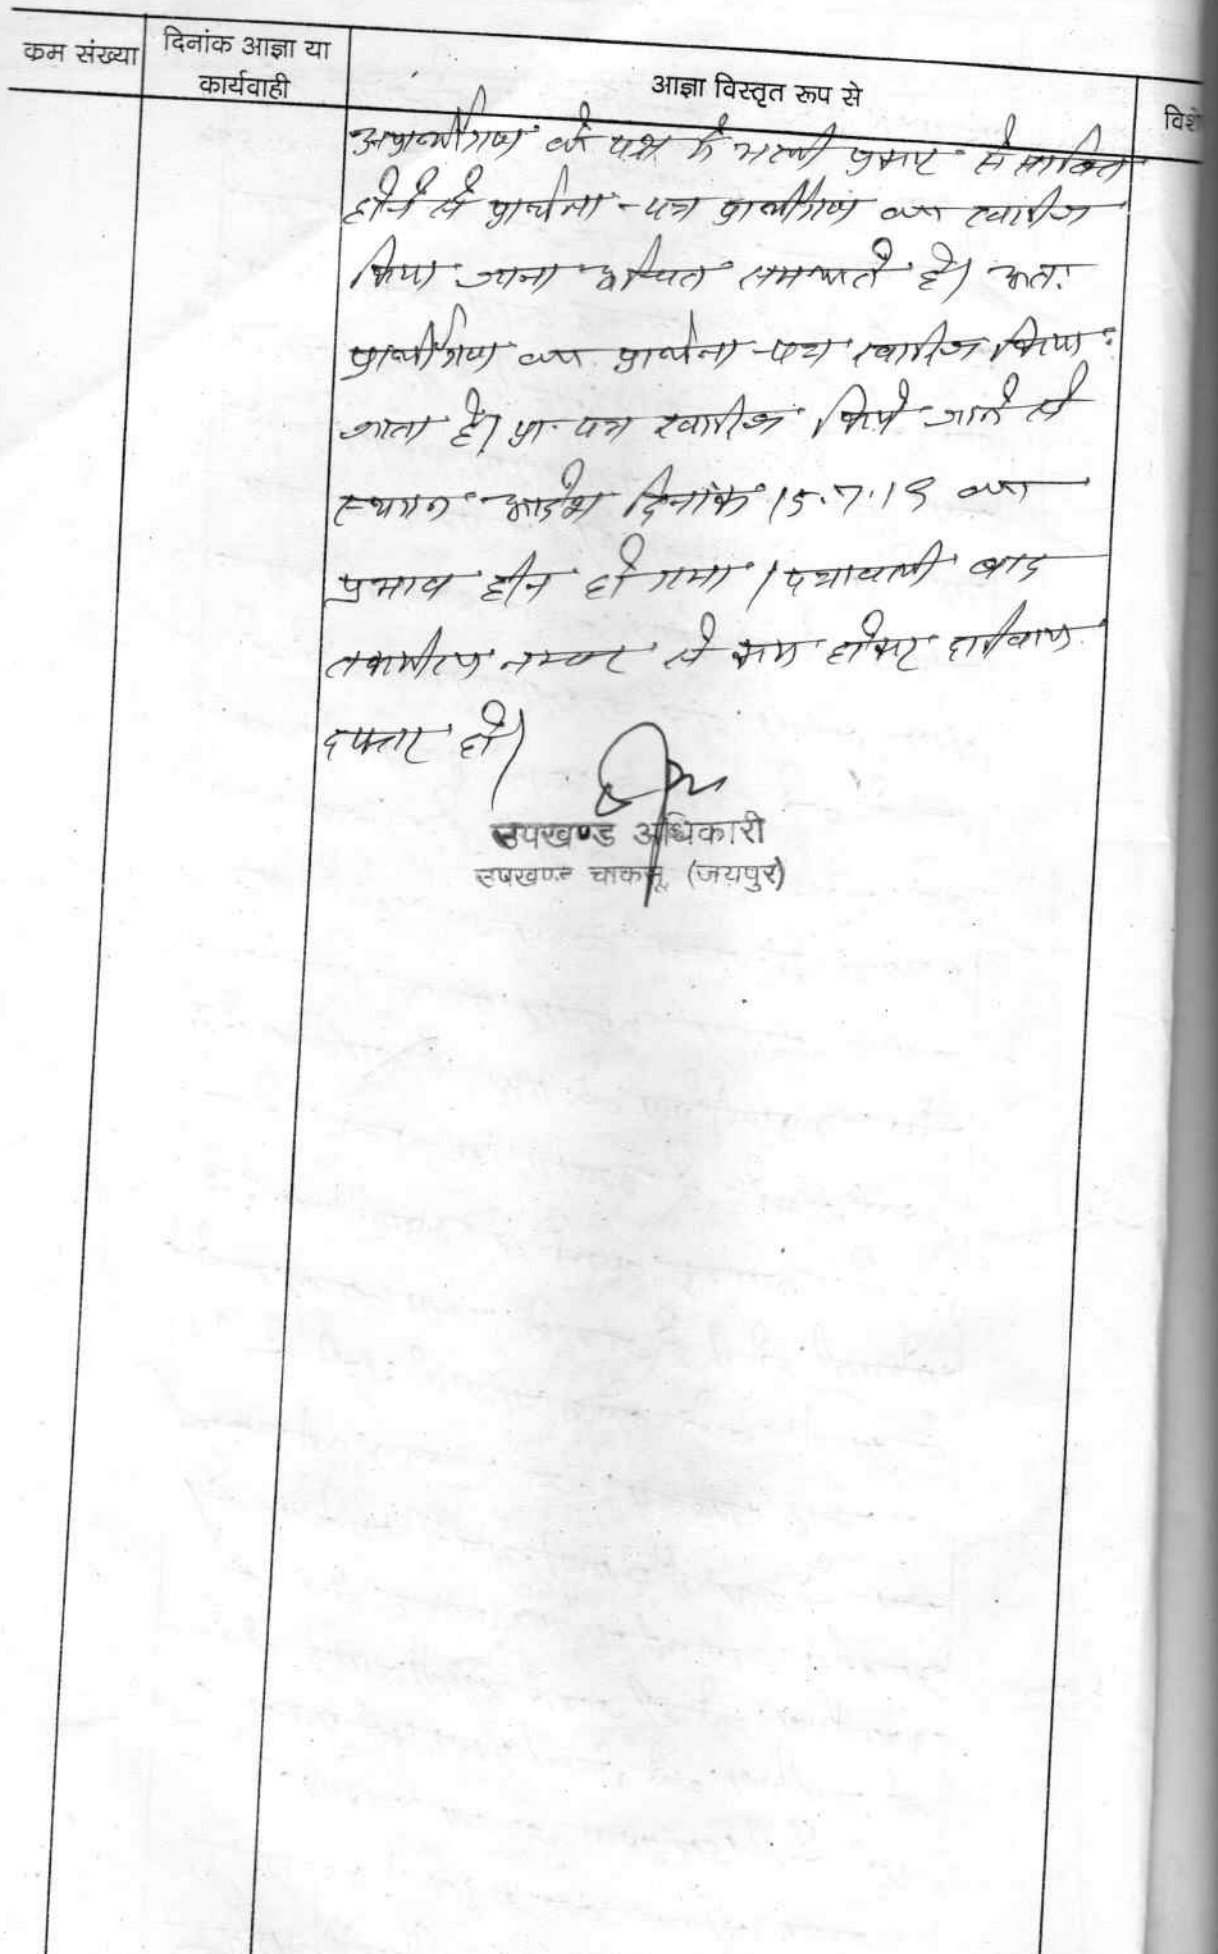 कम संख्या
दिनांक आज्ञा या
कार्यवाही
आज्ञा विस्तृत रूप से
विशे
अप्रार्थीगण के पक्ष में भली प्रकार से साबित
होने से प्रार्थना-पत्र प्रार्थीगण का खारीज
किया जाना उचित समझते है। अतः
प्रार्थीगण का प्रार्थना-पत्र खारीज किया
जाता है। प्रा. पत्र खारीज किये जाने से
स्थगन आदेश दिनांक 15.7.19 का
प्रभाव हीन हो गया। पत्रावली बाद
नम्बर से कम होकर
दफ्तर हो।
उपखण्ड अधिकारी
उपखण्ड चाकसू (जयपुर)